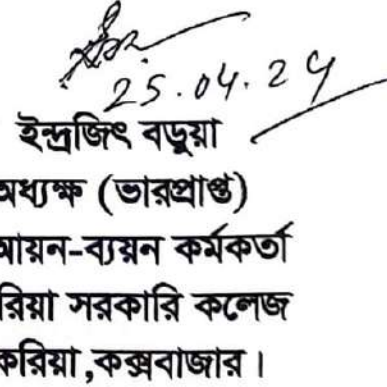 25.04.24
ইন্দ্রজিৎ বড়ুয়া
অধ্যক্ষ (ভারপ্রাপ্ত)
আয়ন-ব্যয়ন কর্মকর্তা
রিয়া সরকারি কলেজ
করিয়া,কক্সবাজার।